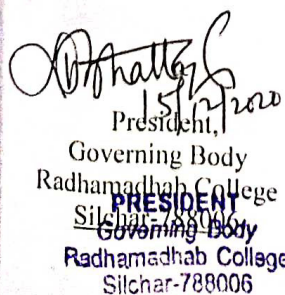 15/12/2020
President,
Governing Body
Radhamadhab College
PRESIDENT
Silchar-788006
Governing Body
Radhamadhab College
Silchar-788006